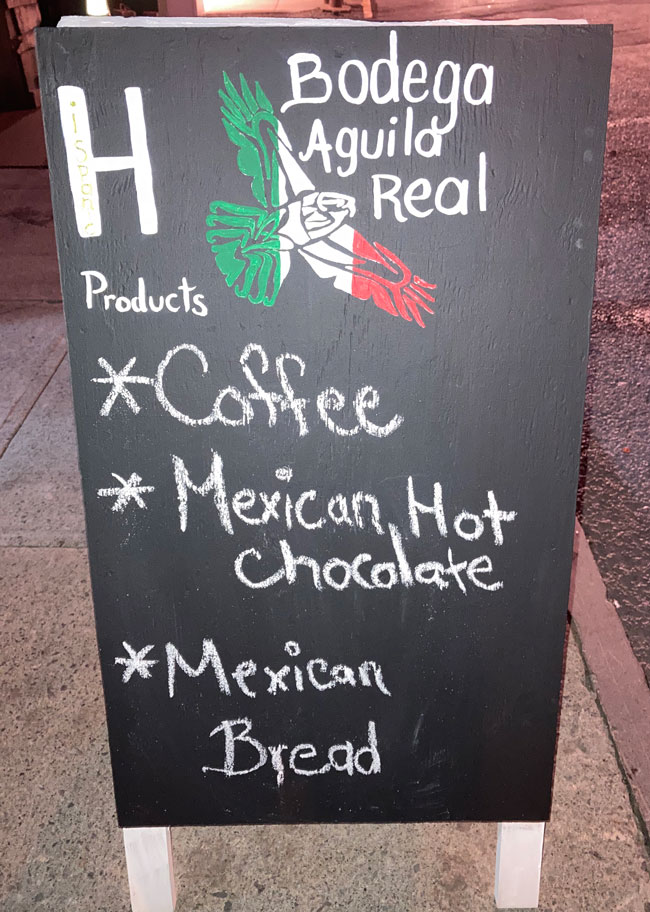 Bodega
Aguila
Real
H
Products
*Coffee
*Mexican Hot
chocolate
*Mexican
Bread